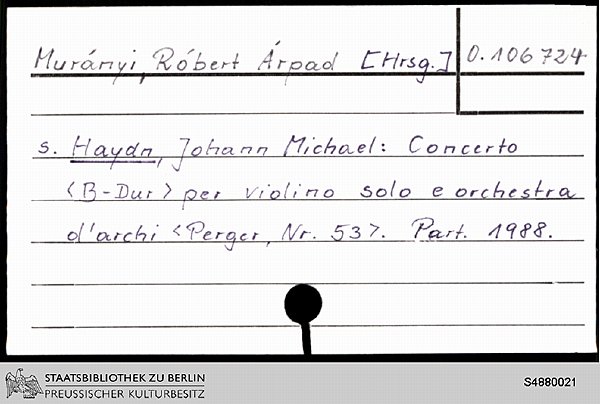 Murányi, Róbert Árpad [Hrsg.] O. 106 724
s. Haydn, Johann Michael: Concerto
<B-Dur> per violino solo e orchestra
d'archi <Perger, Nr. 53>. Part. 1988.
STAATSBIBLIOTHEK ZU BERLIN
PREUSSISCHER KULTURBESITZ
S4880021